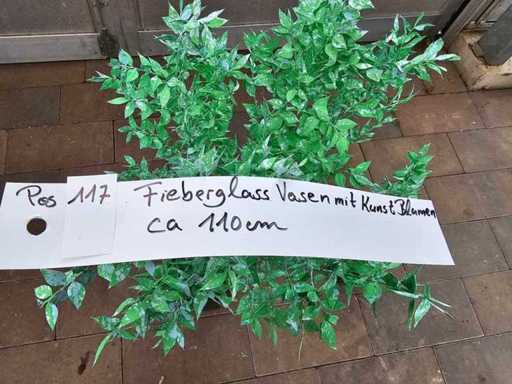 Pos 117 Fieberglass Vasen mit Kunst Blumen
ca 110cm